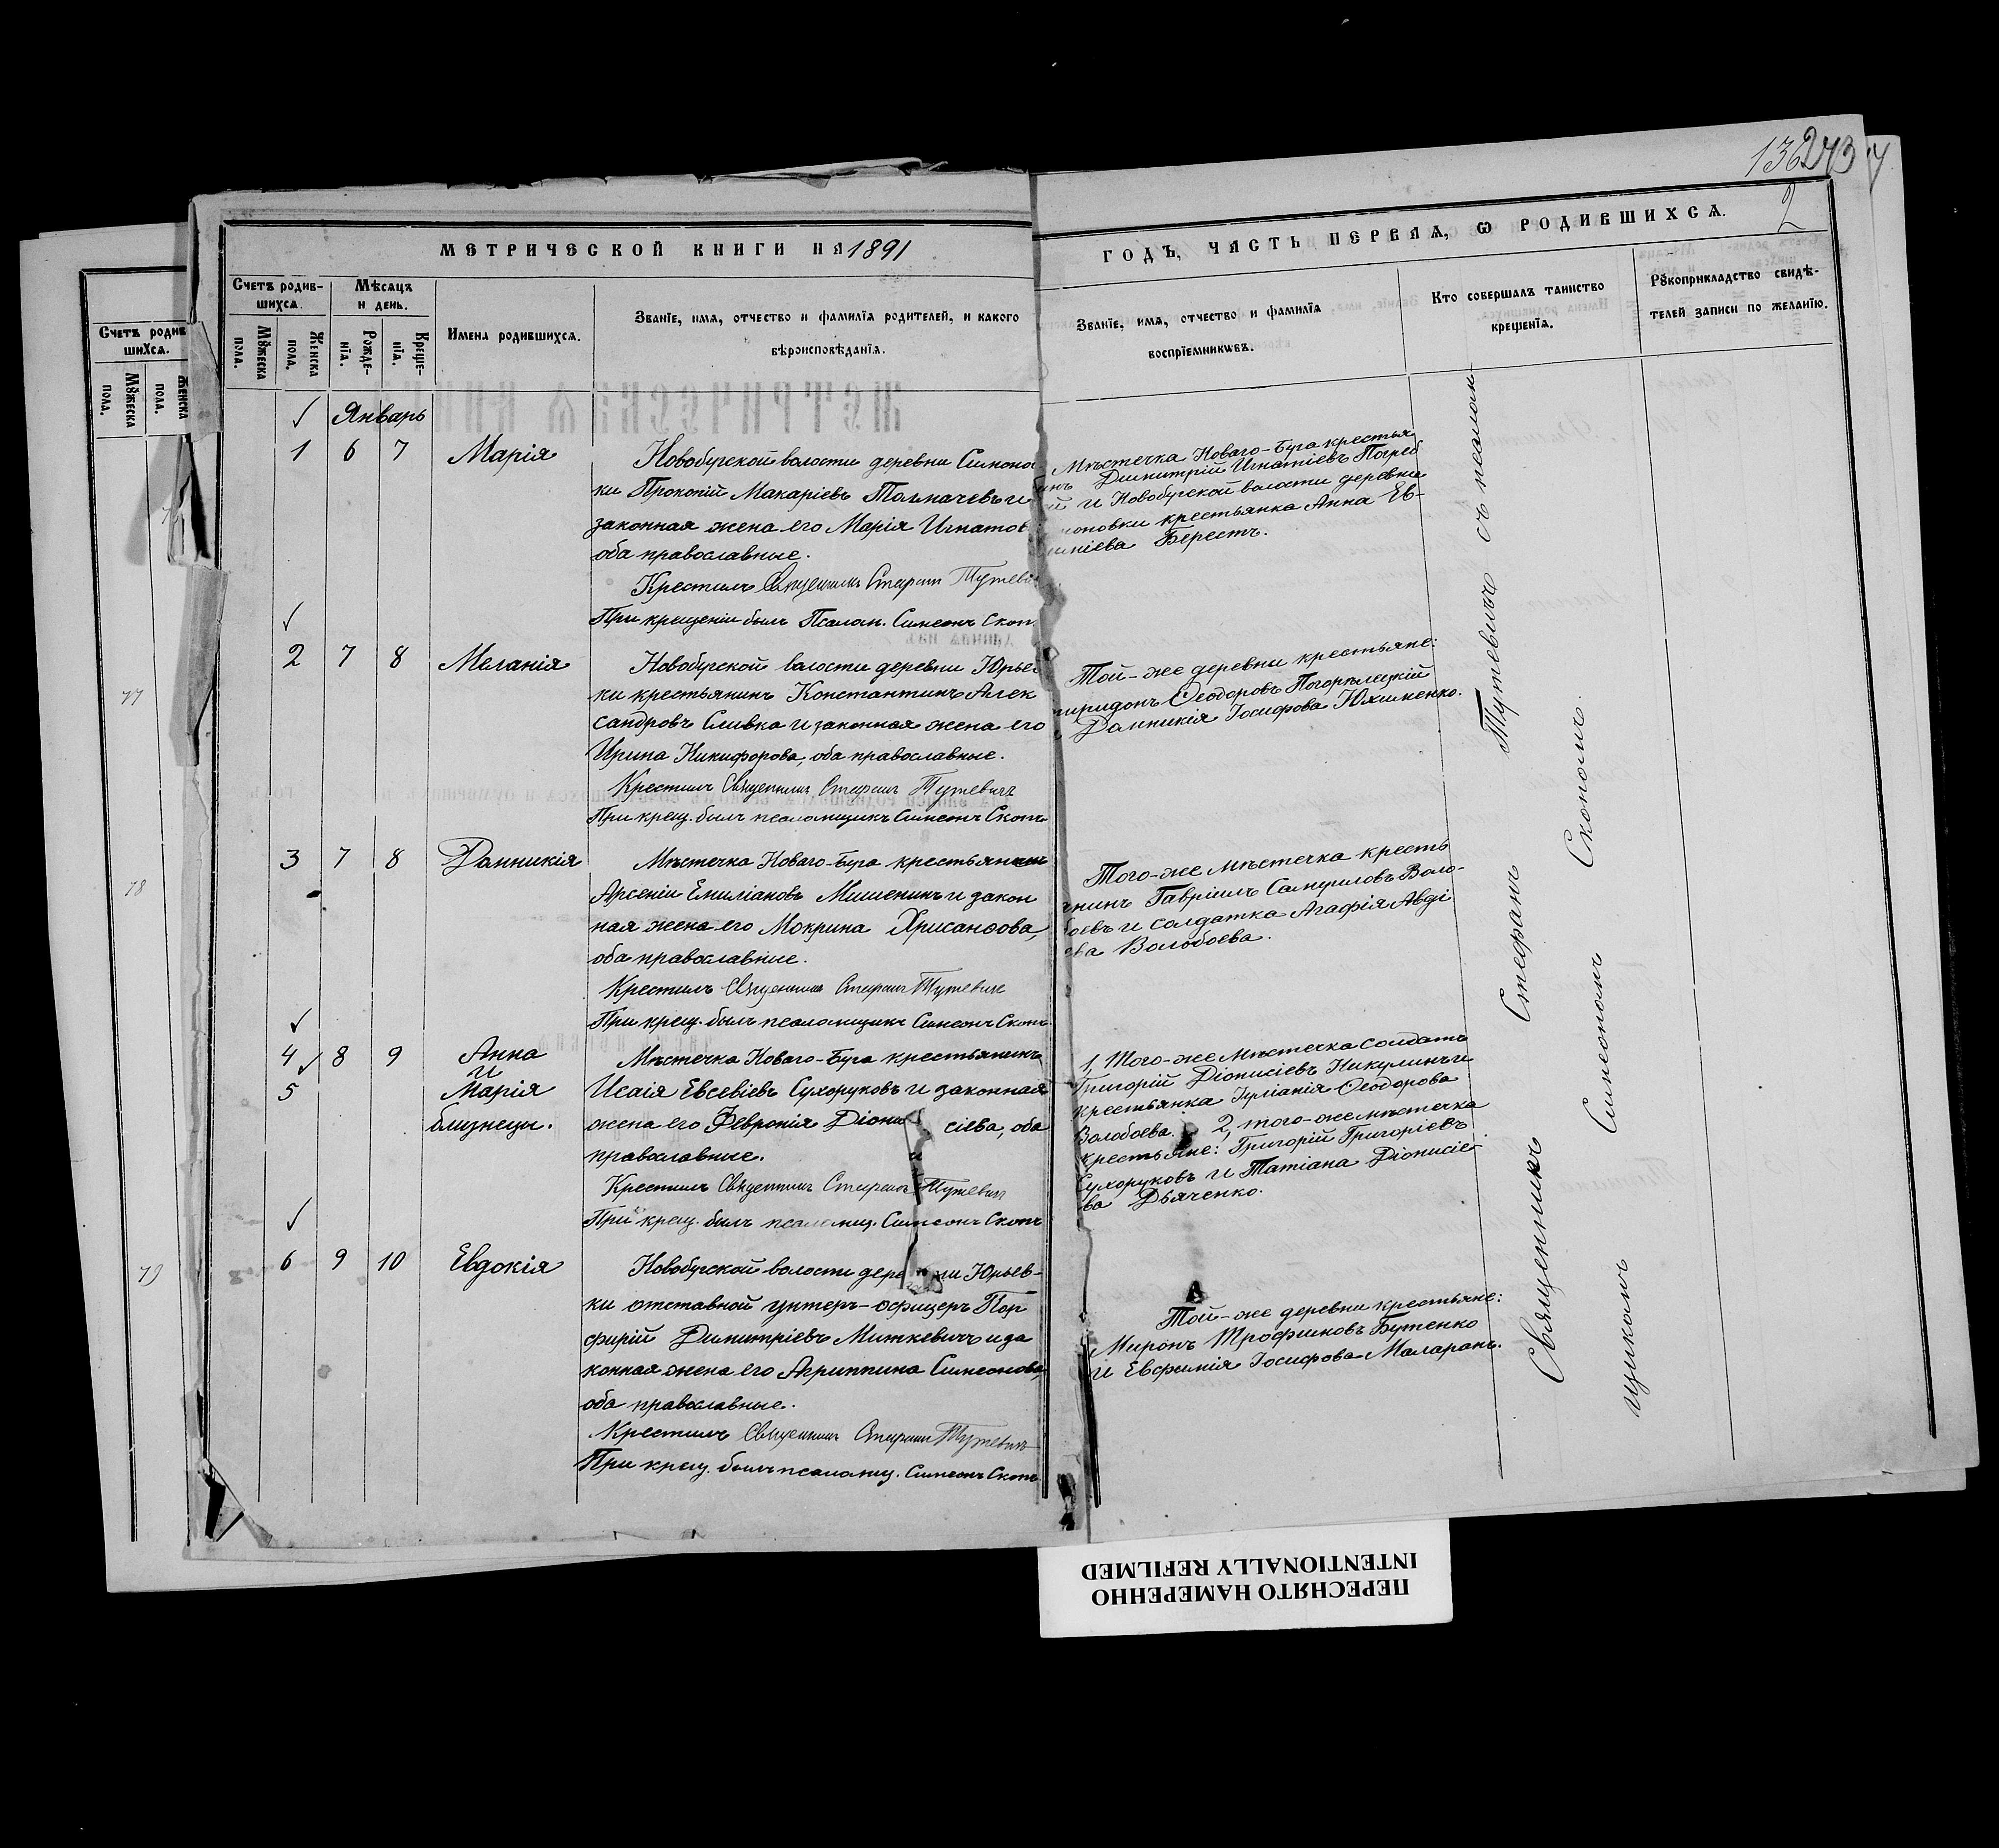 МЕТРИЧЕСКОЙ КНИГИ НА 1891
Счетъ родив-
шихся.
Мѣсяцъ
и день.
Имена родившихся.
Званіе, имя, отчество и фамилія родителей, и какого
вѣроисповѣданія.
Мꙋжеска
пола.
Женска
пола.
Рожде-
нія.
Креще-
нія.
Январь
1 6 7 Марія
Новобугской волости деревни Симоно
ки Прокопій Макаріевъ Толмачевъ и
законная жена его Марія Игнатов
оба православные.
Крестилъ Священникъ Стефанъ Тутеви
При крещеніи былъ Псалом. Симеонъ Скоп
2 7 8 Меланія
Новобугской волости деревни Юрьев
ки крестьянинъ Константинъ Алек
сандровъ Сливка и законная жена его
Ирина Никифорова, оба православные.
Крестилъ Священникъ Стефанъ Тутевичъ
При крещ. былъ псаломщикъ Симеонъ Скопъ
3 7 8 Домникія
Мѣстечка Новаго-Буга крестьянинъ
Арсеній Емиліановъ Мишенинъ и закон
ная жена его Мокрина Хрисанѳова,
оба православные.
Крестилъ Священникъ Стефанъ Тутевичъ
При крещ. былъ псаломщикъ Симеонъ Скоп.
4 8 9 Анна
и
5 Марія
близнецы.
Мѣстечка Новаго-Буга крестьянинъ
Исаія Евсевіевъ Сухоруковъ и законная
жена его Февронія Діони сіева, оба
православные.
Крестилъ Священникъ Стефанъ Тутевич
При крещ. былъ псаломщ. Симеонъ Скопъ
6 9 10 Евдокія
Новобугской волости деревни Юрьев-
ки отставной унтеръ-офицеръ Пор
фирій Димитріевъ Миткевичъ и за
конная жена его Агриппина Симеонова,
оба православные.
Крестилъ Священникъ Стефанъ Тутевичъ
При крещ. былъ псаломщ. Симеонъ Скоп.
2
ГОДЪ, ЧАСТЬ ПЕРВАЯ, Ѡ РОДИВШИХСЯ.
Званіе, имя, отчество и фамилія
воспріемникѡвъ.
Кто совершалъ таинство
крещенія.
Рꙋкоприкладство свидѣ-
телей записи по желанію.
Мѣстечка Новаго-Буга крестья
инъ Димитрій Игнатіевъ Погреб
й и Новобугской волости деревни
моновки крестьянка Анна Ев-
ніева Берестъ.
Той-же деревни крестьяне:
пиридонъ Ѳеодоровъ Погорѣлецкій
Домникія Іосифова Юхименко.
Того-же мѣстечка кресть
нинъ Гавріилъ Самуиловъ Воло-
боевъ и солдатка Агафія Авді
ева Волобоева.
1, Того-же мѣстечка солдатъ
Григорій Діонисіевъ Никулинъ и
крестьянка Іуліанія Ѳеодорова
Волобоева. 2, того-же мѣстечка
крестьяне: Григорій Григоріевъ
Сухоруковъ и Татіана Діонисіе
ва Дьяченко.
Той-же деревни крестьяне:
Миронъ Трофимовъ Бутенко
и Евфимія Іосифова Маларанъ.
Священникъ Стефанъ Тутевичъ съ псалом-
щикомъ Симеономъ Скопомъ.
Счетъ родив
шихся.
Мꙋжеска
пола.
Женска
пола.
77
78
79
ПЕРЕСНЯТО НАМЕРЕННО
INTENTIONALLY REFILMED